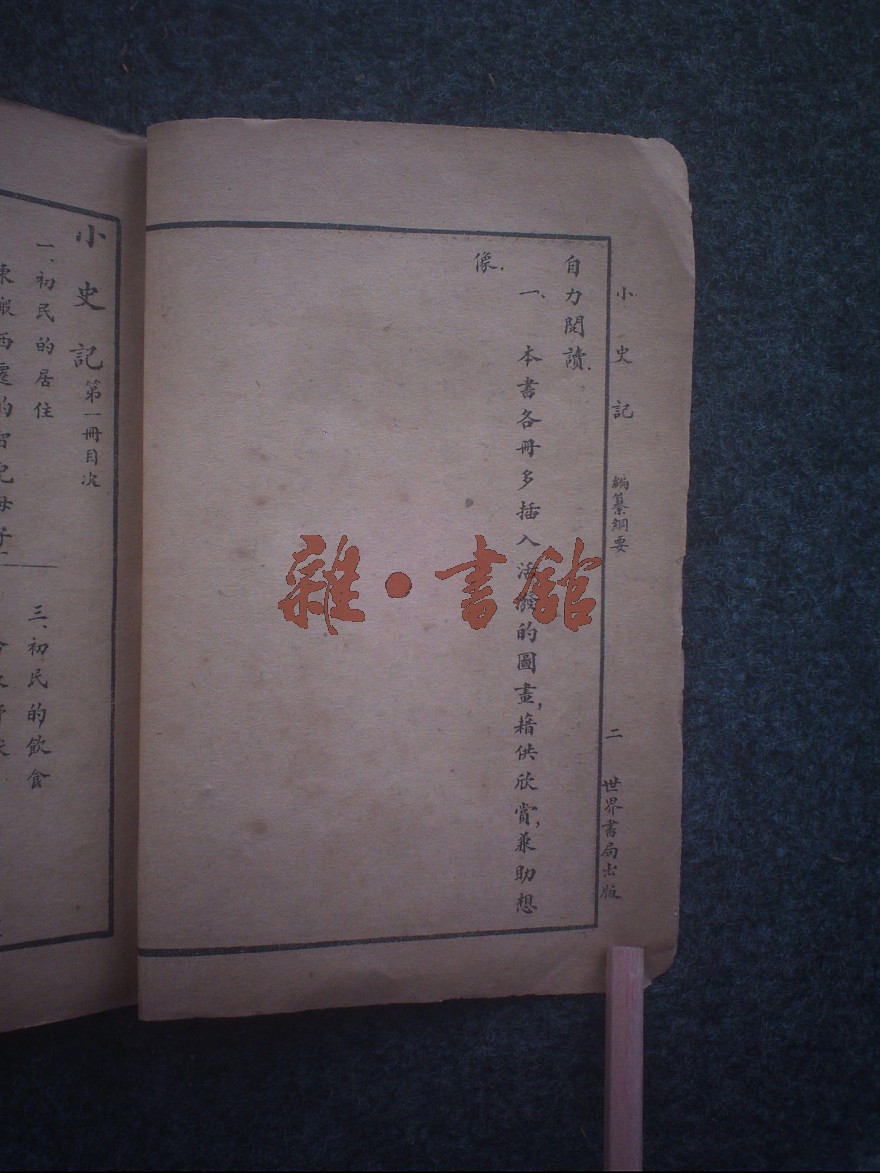 小史記 編纂綱要 二 世界書局出版
自力閱讀.
一、本書各冊多插入活潑的圖畫,藉供欣賞,兼助想
像.
小史記 第一冊目次
一、初民的居住
三、初民的飲食
雜·書館